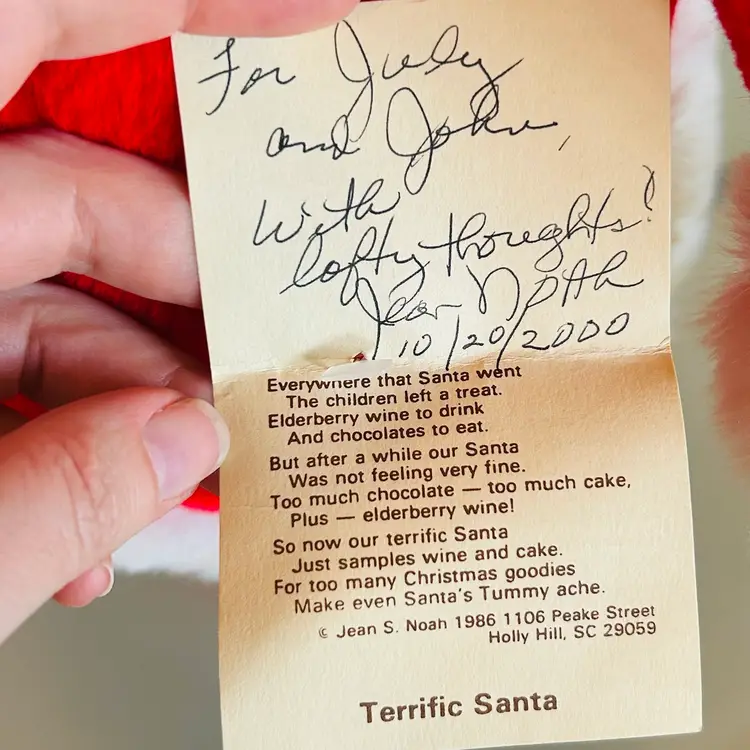 For Judy
and John,
With
lofty thoughts!
Jean Noah
10/20/2000
Everywhere that Santa went
The children left a treat.
Elderberry wine to drink
And chocolates to eat.
But after a while our Santa
Was not feeling very fine.
Too much chocolate — too much cake,
Plus — elderberry wine!
So now our terrific Santa
Just samples wine and cake.
For too many Christmas goodies
Make even Santa's Tummy ache.
© Jean S. Noah 1986 1106 Peake Street
Holly Hill, SC 29059
Terrific Santa